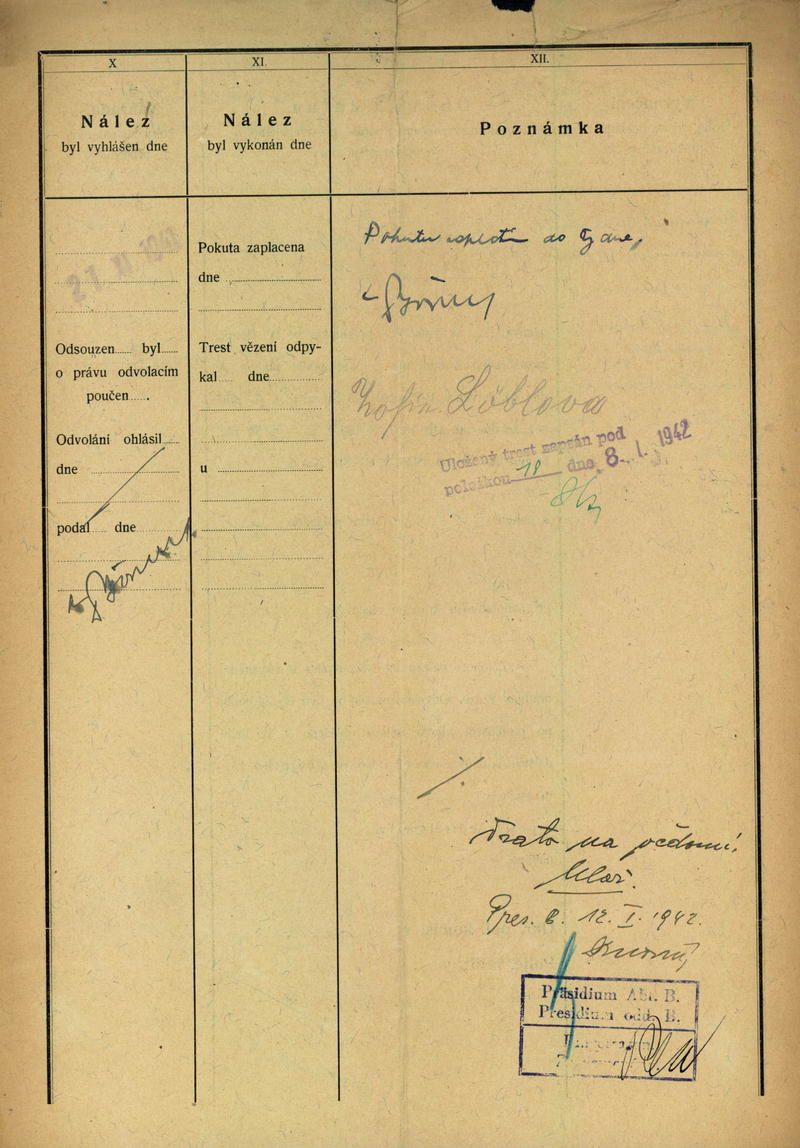 X
Nález
byl vyhlášen dne
XI.
Nález
byl vykonán dne
XII.
Poznámka
Odsouzen byl
o právu odvolacím
poučen
Odvolání ohlásil
dne
podal dne
Pokuta zaplacena
dne
Trest vězení odpy-
kal dne
u
Pokutu do 5 dne.
Žofie Löblova
Uložený trest zapsán pod
položkou 18 dne 8. I. 1942
na vědomí
Pres. B. 12. I. 1942.
Präsidium Abt. B.
Presidium odd. B.